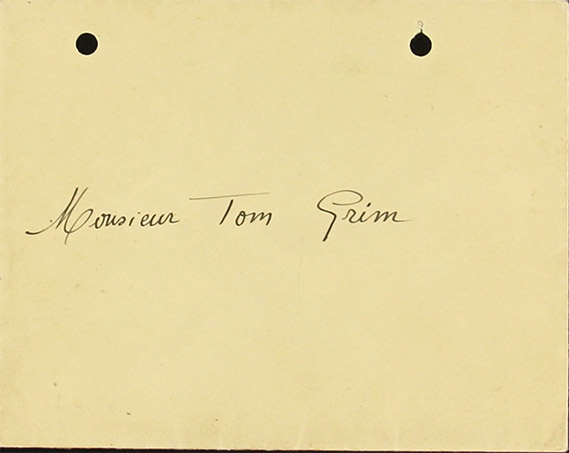 Monsieur Tom Grim